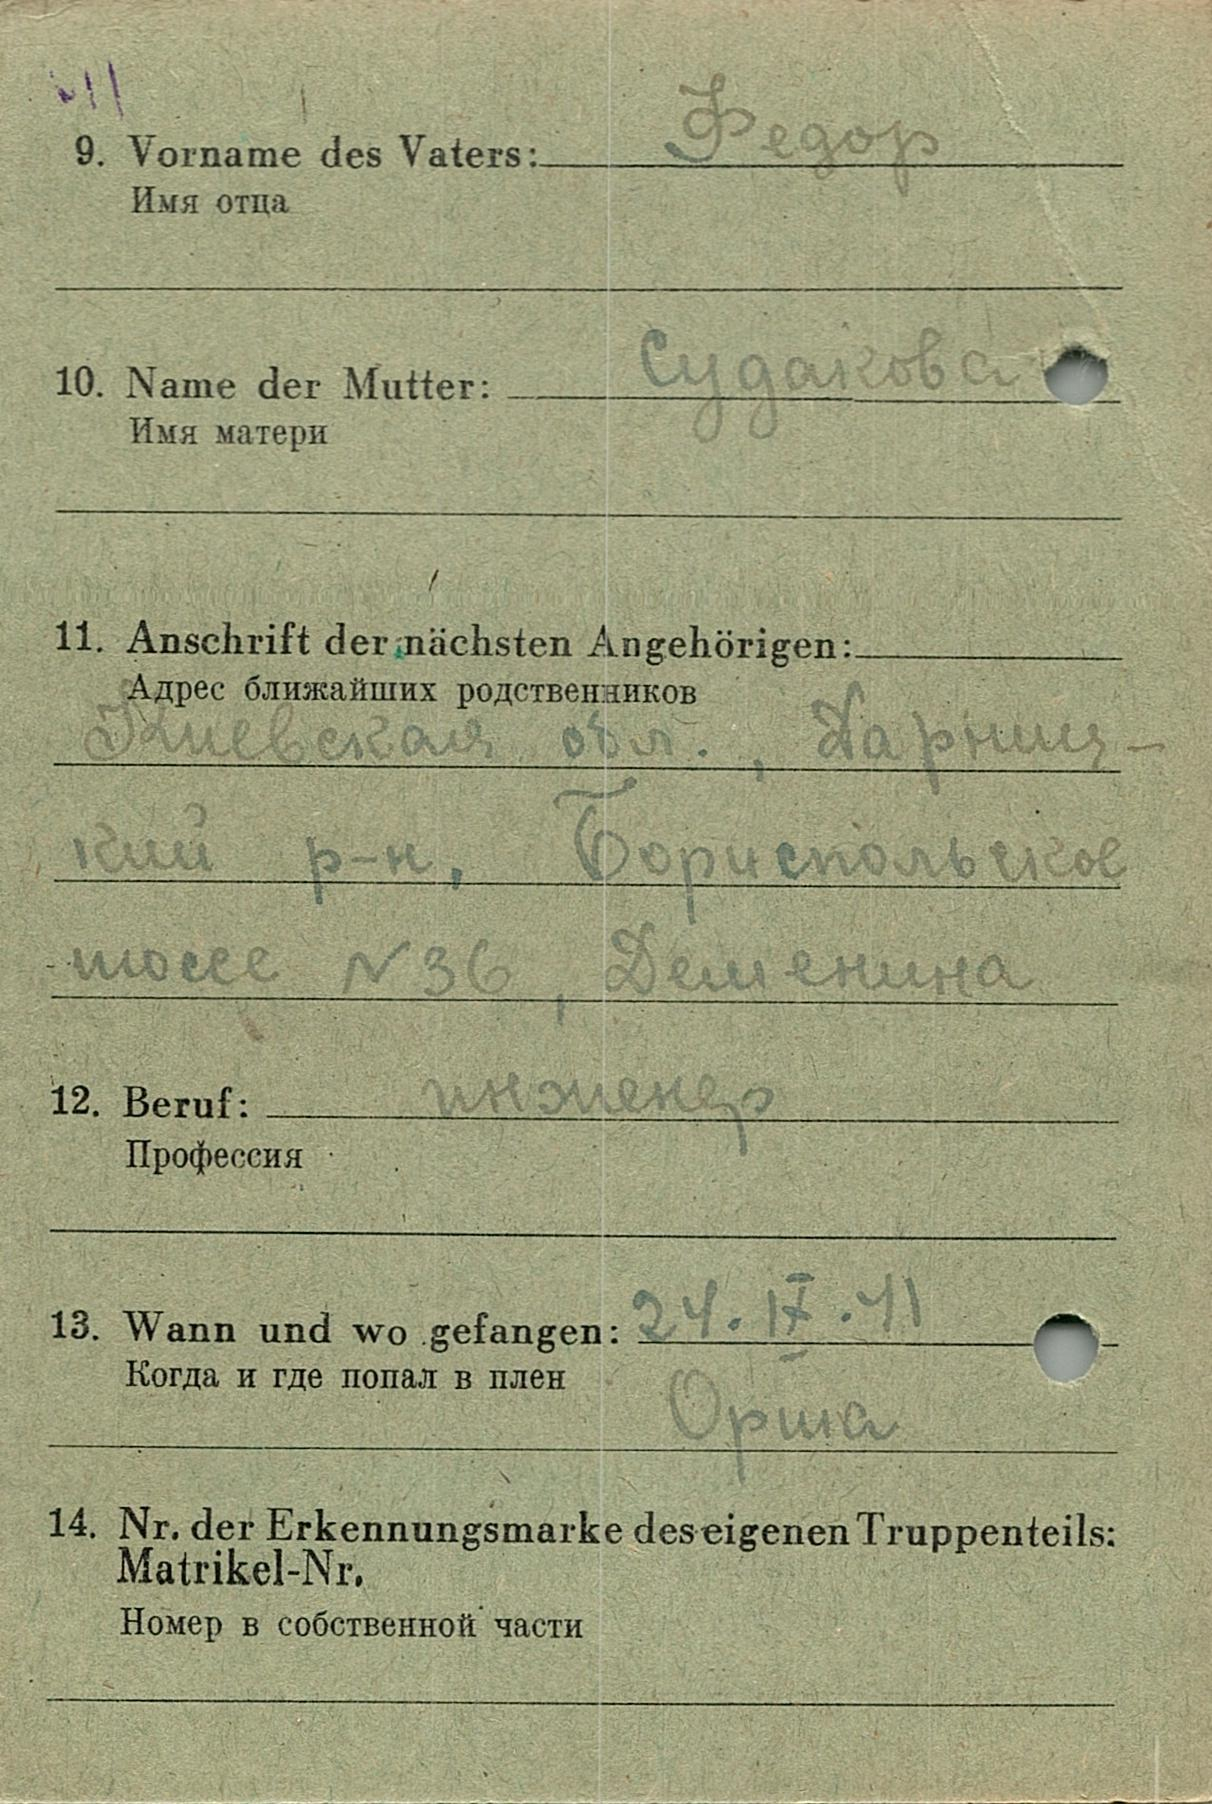 9. Vorname des Vaters: Федор
Имя отца
10. Name der Mutter: Судакова
Имя матери
11. Anschrift der nächsten Angehörigen:
Адрес ближайших родственников
Киевская обл., Дарниц-
кий р-н, Бориспольское
шоссе №36, Деменина
12. Beruf: инженер
Профессия
13. Wann und wo gefangen: 24.IX.41
Когда и где попал в плен
Орша
14. Nr. der Erkennungsmarke des eigenen Truppenteils:
Matrikel-Nr.
Номер в собственной части